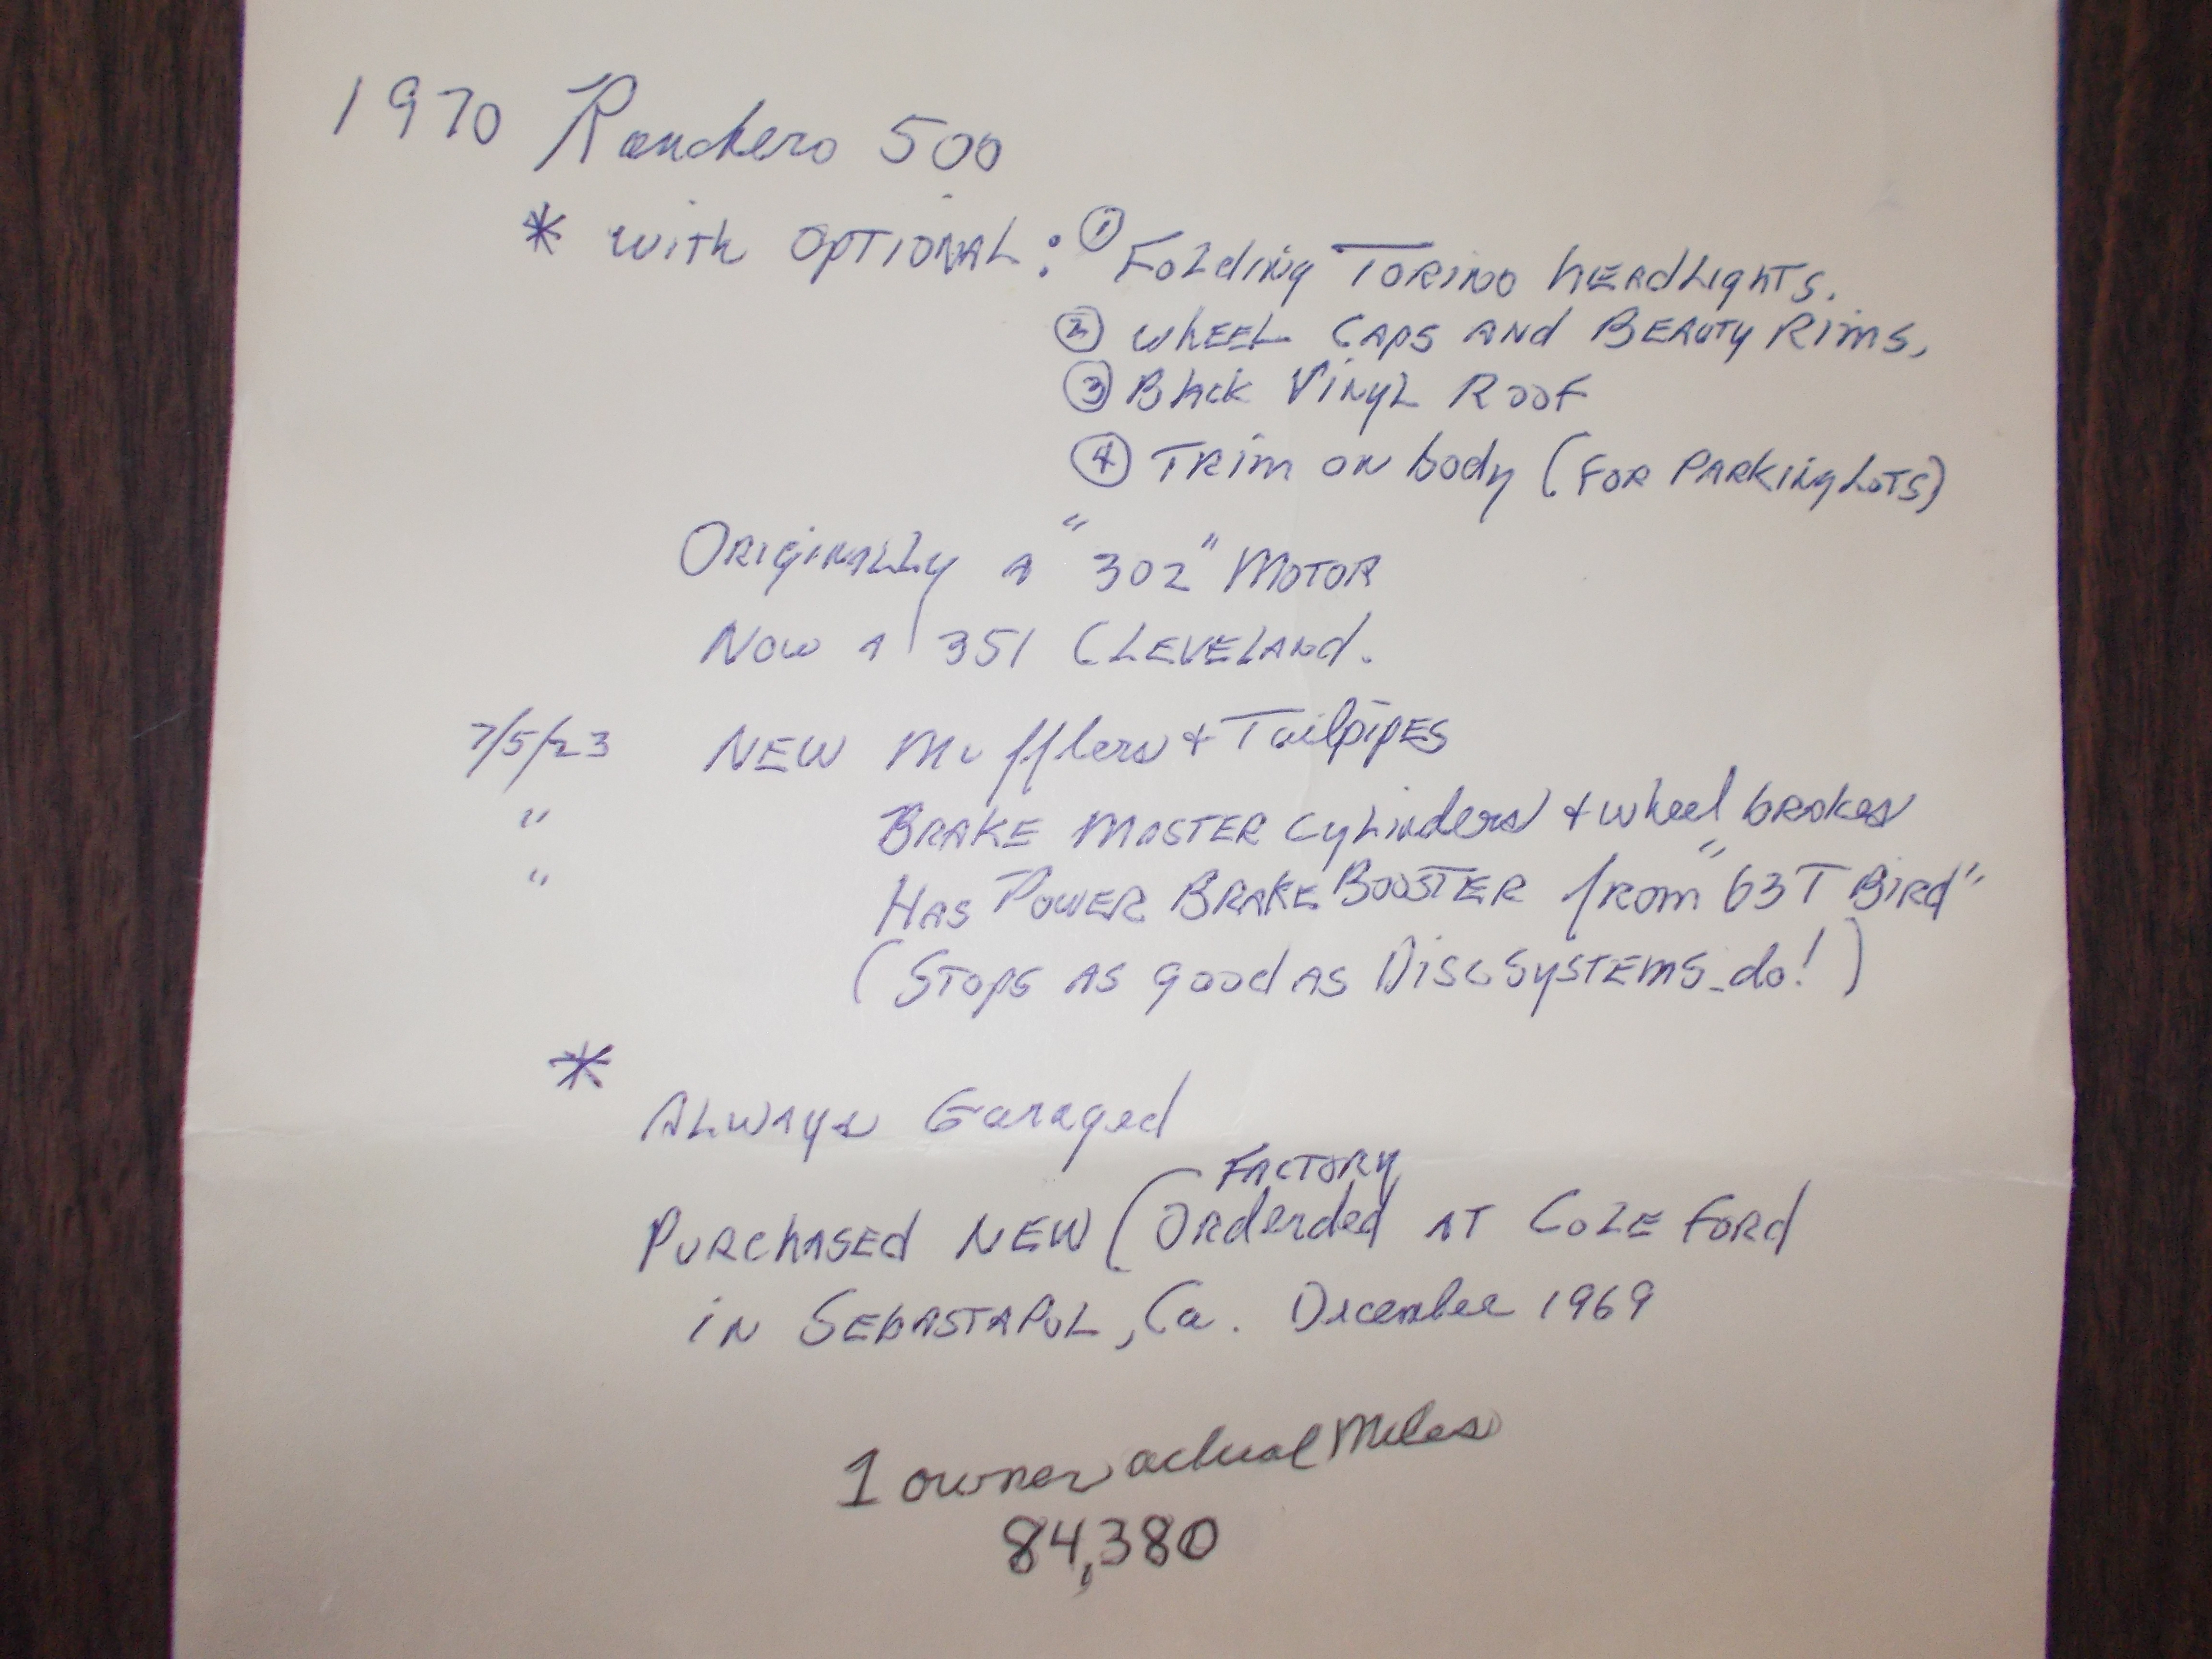 1970 Ranchero 500
* with OPTIONAL: ① Folding TORINO HEADLIGHTS.
② WHEEL CAPS AND BEAUTY RIMS,
③ Black Vinyl Roof
④ TRIM ON body (FOR PARKING LOTS)
ORIGINALLY A "302" MOTOR
NOW A 351 CLEVELAND.
7/5/23 NEW Mufflers & TailpipES
" BRAKE MASTER CYLINders & wheel brakes
" HAS POWER BRAKE BOOSTER from "63 T BIRD"
(STOPS AS good AS DISC SYSTEMS do!)
*
ALWAYS Garaged
FACTORY
PURCHASED NEW (ORderded AT COLE FORD
IN SEBASTAPOL, Ca. December 1969
1 owner actual Miles
84,380